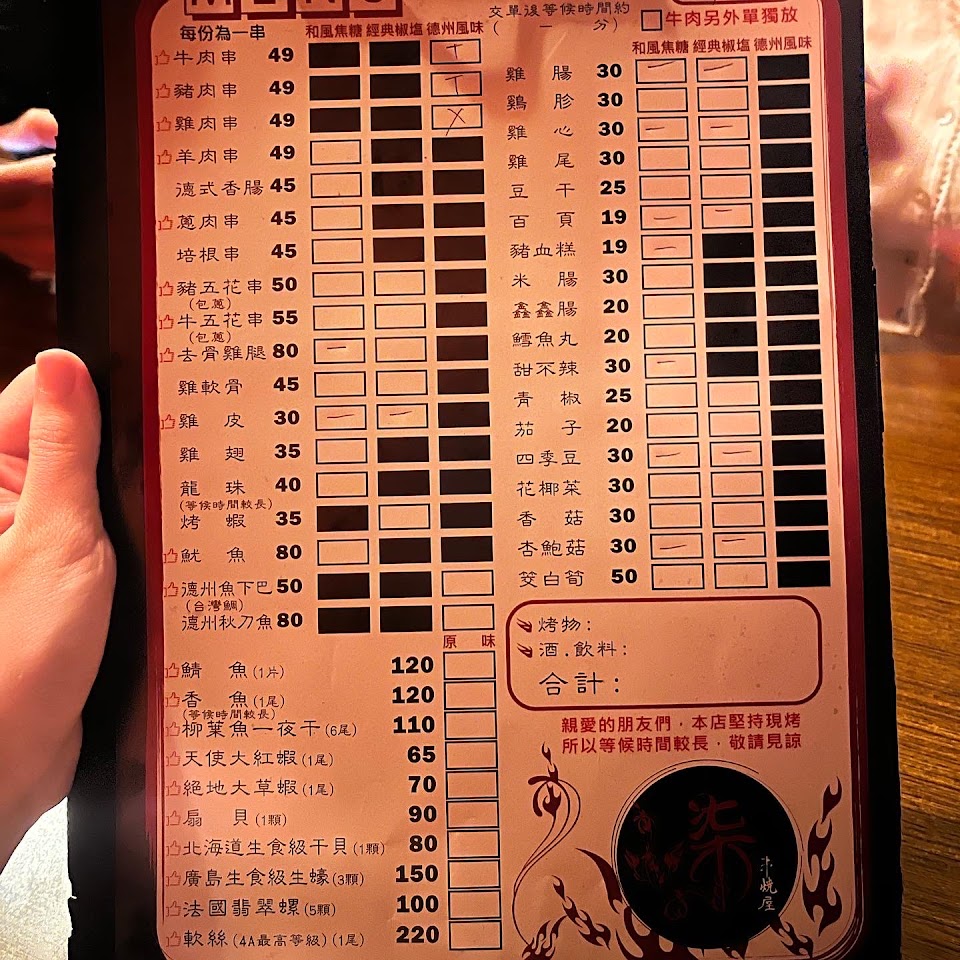 MENU
每份為一串
和風焦糖 經典椒塩 德州風味
牛肉串 49
豬肉串 49
雞肉串 49
羊肉串 49
德式香腸 45
蔥肉串 45
培根串 45
豬五花串 50
(包蔥)
牛五花串 55
(包蔥)
去骨雞腿 80
雞軟骨 45
雞皮 30
雞翅 35
龍珠 40
(等候時間較長)
烤蝦 35
魷魚 80
德州魚下巴 50
(台灣鯛)
德州秋刀魚 80
原味
鯖魚(1片) 120
香魚(1尾) 120
(等候時間較長)
柳葉魚一夜干(6尾) 110
天使大紅蝦(1尾) 65
絕地大草蝦(1尾) 70
扇貝(1顆) 90
北海道生食級干貝(1顆) 80
廣島生食級生蠔(3顆) 150
法國翡翠螺(5顆) 100
軟絲(4A最高等級)(1尾) 220
交單後等候時間約
( — 分)
牛肉另外單獨放
和風焦糖 經典椒塩 德州風味
雞腸 30
雞胗 30
雞心 30
雞尾 30
豆干 25
百頁 19
豬血糕 19
米腸 30
鑫鑫腸 20
鱈魚丸 20
甜不辣 30
青椒 25
茄子 20
四季豆 30
花椰菜 30
香菇 30
杏鮑菇 30
筊白筍 50
烤物:
酒.飲料:
合計:
親愛的朋友們,本店堅持現烤
所以等候時間較長,敬請見諒
柒
串燒屋